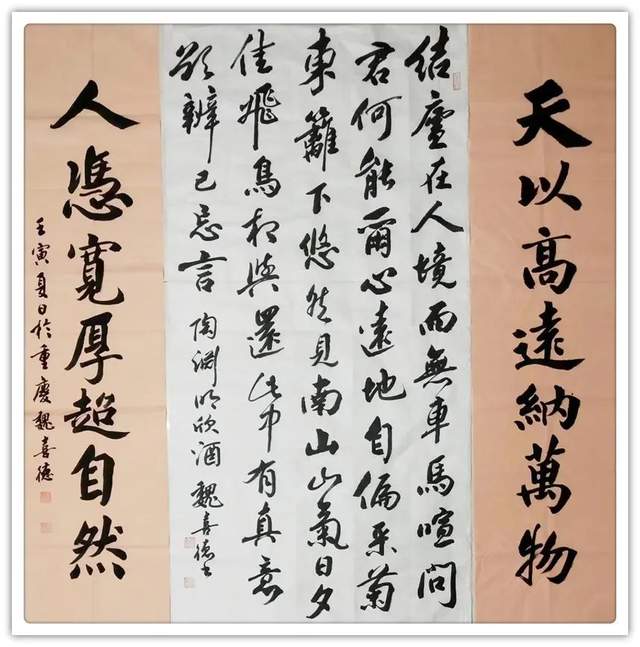 天以高遠納萬物
結廬在人境而無車馬喧問
君何能爾心遠地自偏采菊
東籬下悠然見南山山氣日夕
佳飛鳥相與還此中有真意
欲辨已忘言 陶淵明飲酒 魏喜德書
人憑寬厚超自然
壬寅夏日於重慶魏喜德